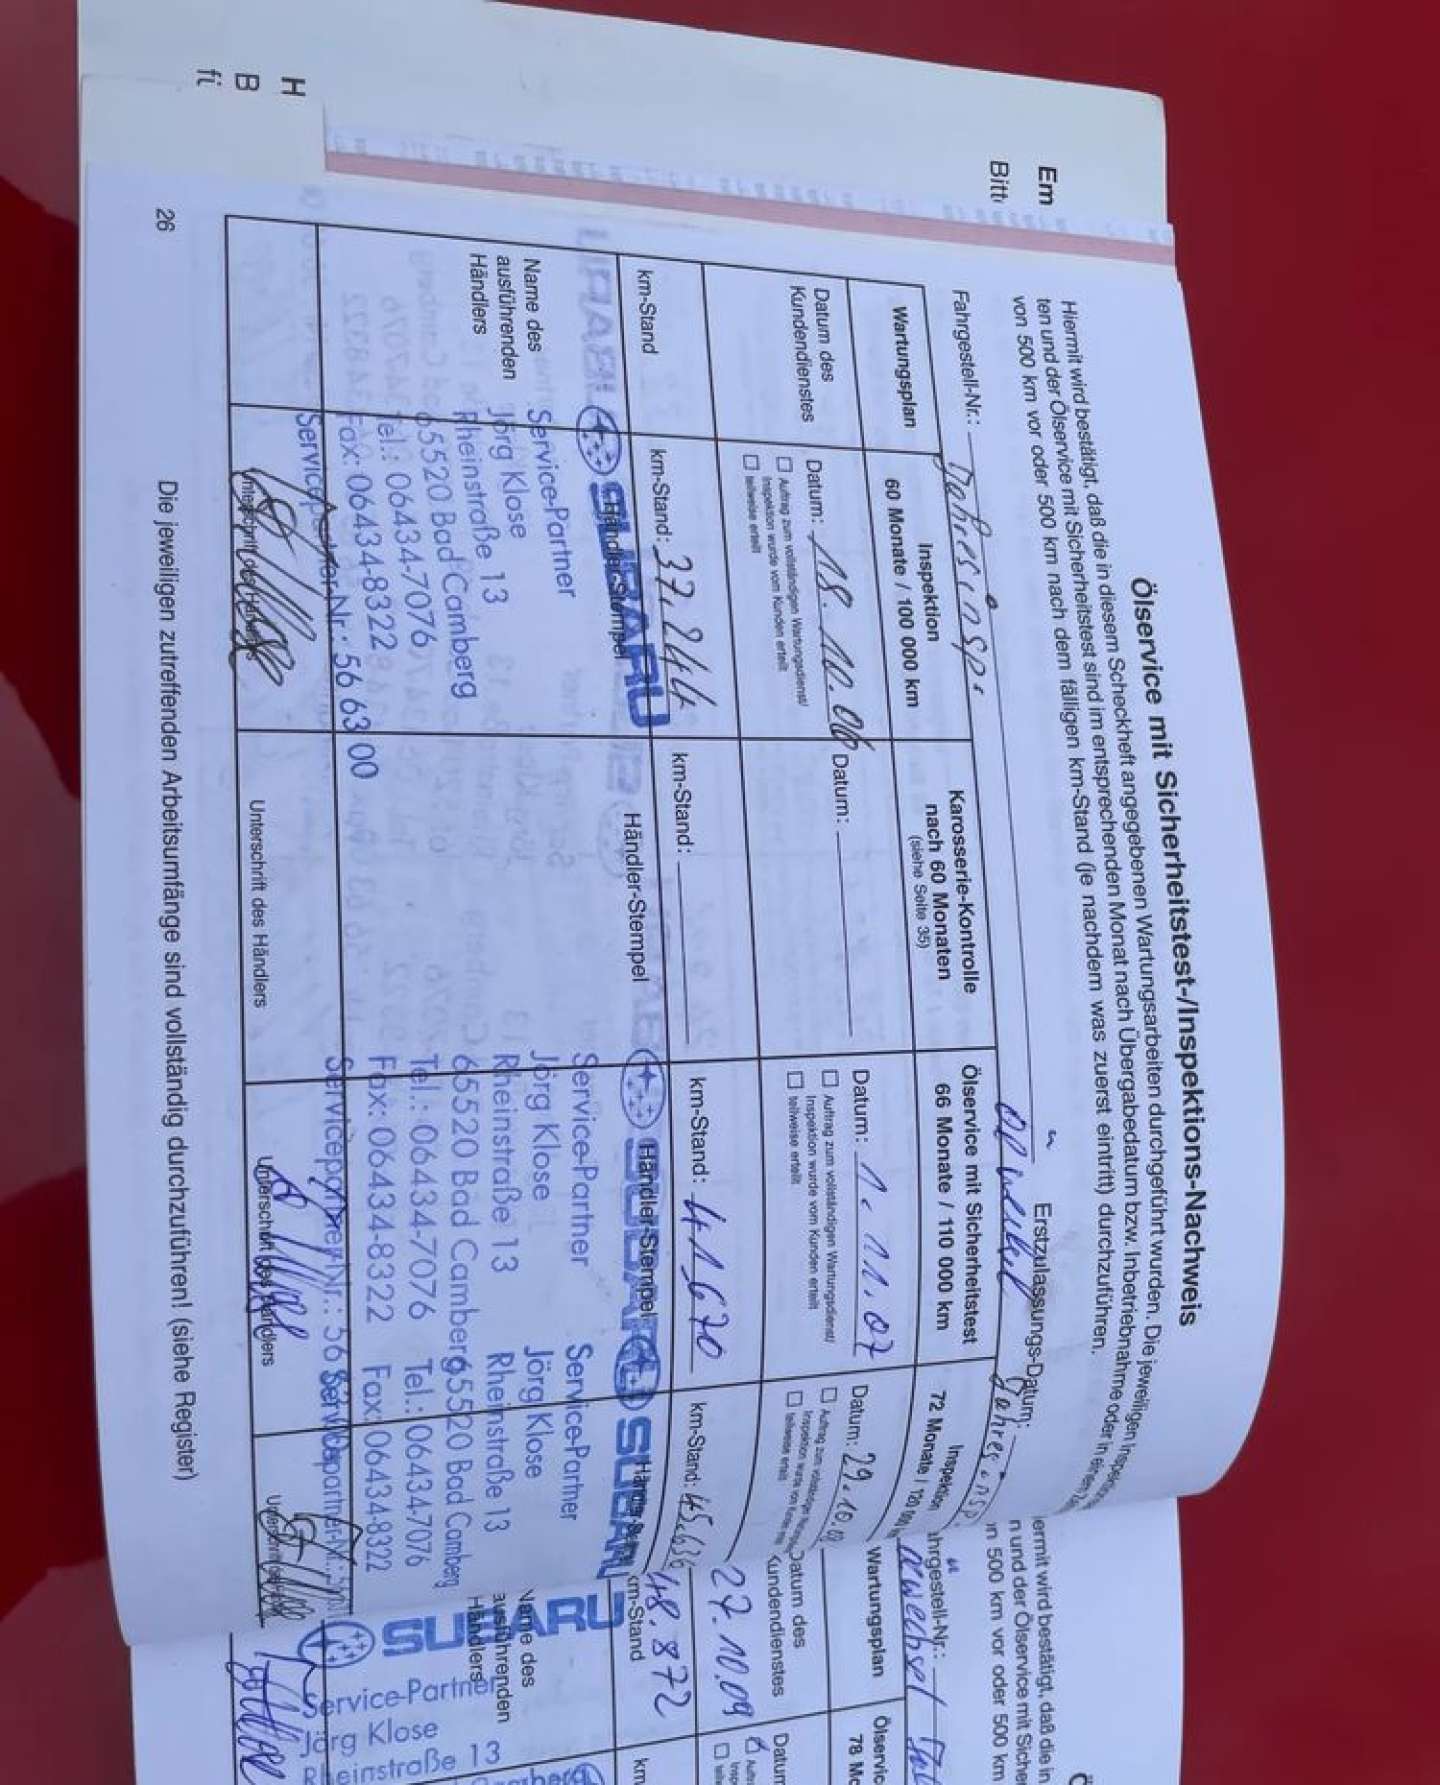 Ölservice mit Sicherheitstest-/Inspektions-Nachweis
Hiermit wird bestätigt, daß die in diesem Scheckheft angegebenen Wartungsarbeiten durchgeführt wurden. Die jeweiligen
ten und der Ölservice mit Sicherheitstest sind im entsprechenden Monat nach Übergabedatum bzw. Inbetriebnahme oder in
von 500 km vor oder 500 km nach dem fälligen km-Stand (je nachdem was zuerst eintritt) durchzuführen.
Fahrgestell-Nr.: Jahresinsp. Ölwechsel Erstzulassungs-Datum: Jahresinsp.
Wartungsplan
Inspektion
60 Monate / 100 000 km
Karosserie-Kontrolle
nach 60 Monaten
(siehe Seite 35)
Ölservice mit Sicherheitstest
66 Monate / 110 000 km
Inspektion
72 Monate / 120 000
Datum des
Kundendienstes
Datum: 18.10.06
Auftrag zum vollständigen Wartungsdienst/
Inspektion wurde vom Kunden erteilt
teilweise erteilt
Datum:
Datum: 1. 11.07
Auftrag zum vollständigen Wartungsdienst/
Inspektion wurde vom Kunden erteilt
teilweise erteilt
Datum: 29.10.
Auftrag zum vollständigen
Inspektion wurde vom Kunden
teilweise erteilt
km-Stand
km-Stand: 37.244
km-Stand:
km-Stand: 41670
km-Stand: 45.636
Name des
ausführenden
Händlers
Händler-Stempel
SUBARU
Service-Partner
Jörg Klose
Rheinstraße 13
65520 Bad Camberg
Tel.: 06434-7076
Fax: 06434-8322
Servicepartner-Nr.: 56 63 00
Unterschrift des Händlers
Händler-Stempel
Unterschrift des Händlers
Händler-Stempel
SUBARU
Service-Partner
Jörg Klose
Rheinstraße 13
65520 Bad Camberg
Tel.: 06434-7076
Fax: 06434-8322
Servicepartner-Nr.: 56
Unterschrift des Händlers
SUBARU
Service-Partner
Jörg Klose
Rheinstraße 13
65520 Bad Camberg
Tel.: 06434-7076
Fax: 06434-8322
Servicepartner-Nr.:
Die jeweiligen zutreffenden Arbeitsumfänge sind vollständig durchzuführen! (siehe Register)
26
Em
Bitt
H
B
fi
iermit wird bestätigt, daß die in
n und der Ölservice mit Siche
n 500 km vor oder 500 km
hrgestell-Nr.:
Wartungsplan
Ölservic
78 Mo
Datum des
Kundendienstes
27.10.09
Datum
km-Stand
48.872
km
Name des
ausführenden
Händlers
SUBARU
Service-Partner
Jörg Klose
Rheinstraße 13